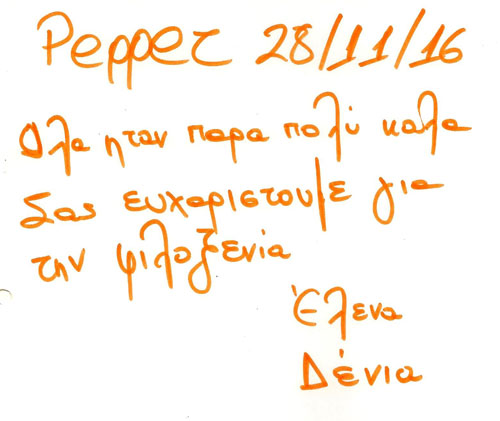 Pepper 28/11/16
Ολα ηταν παρα πολύ καλα
Σας ευχαριστουμε για
την φιλοξενία
Έλενα
Δένια